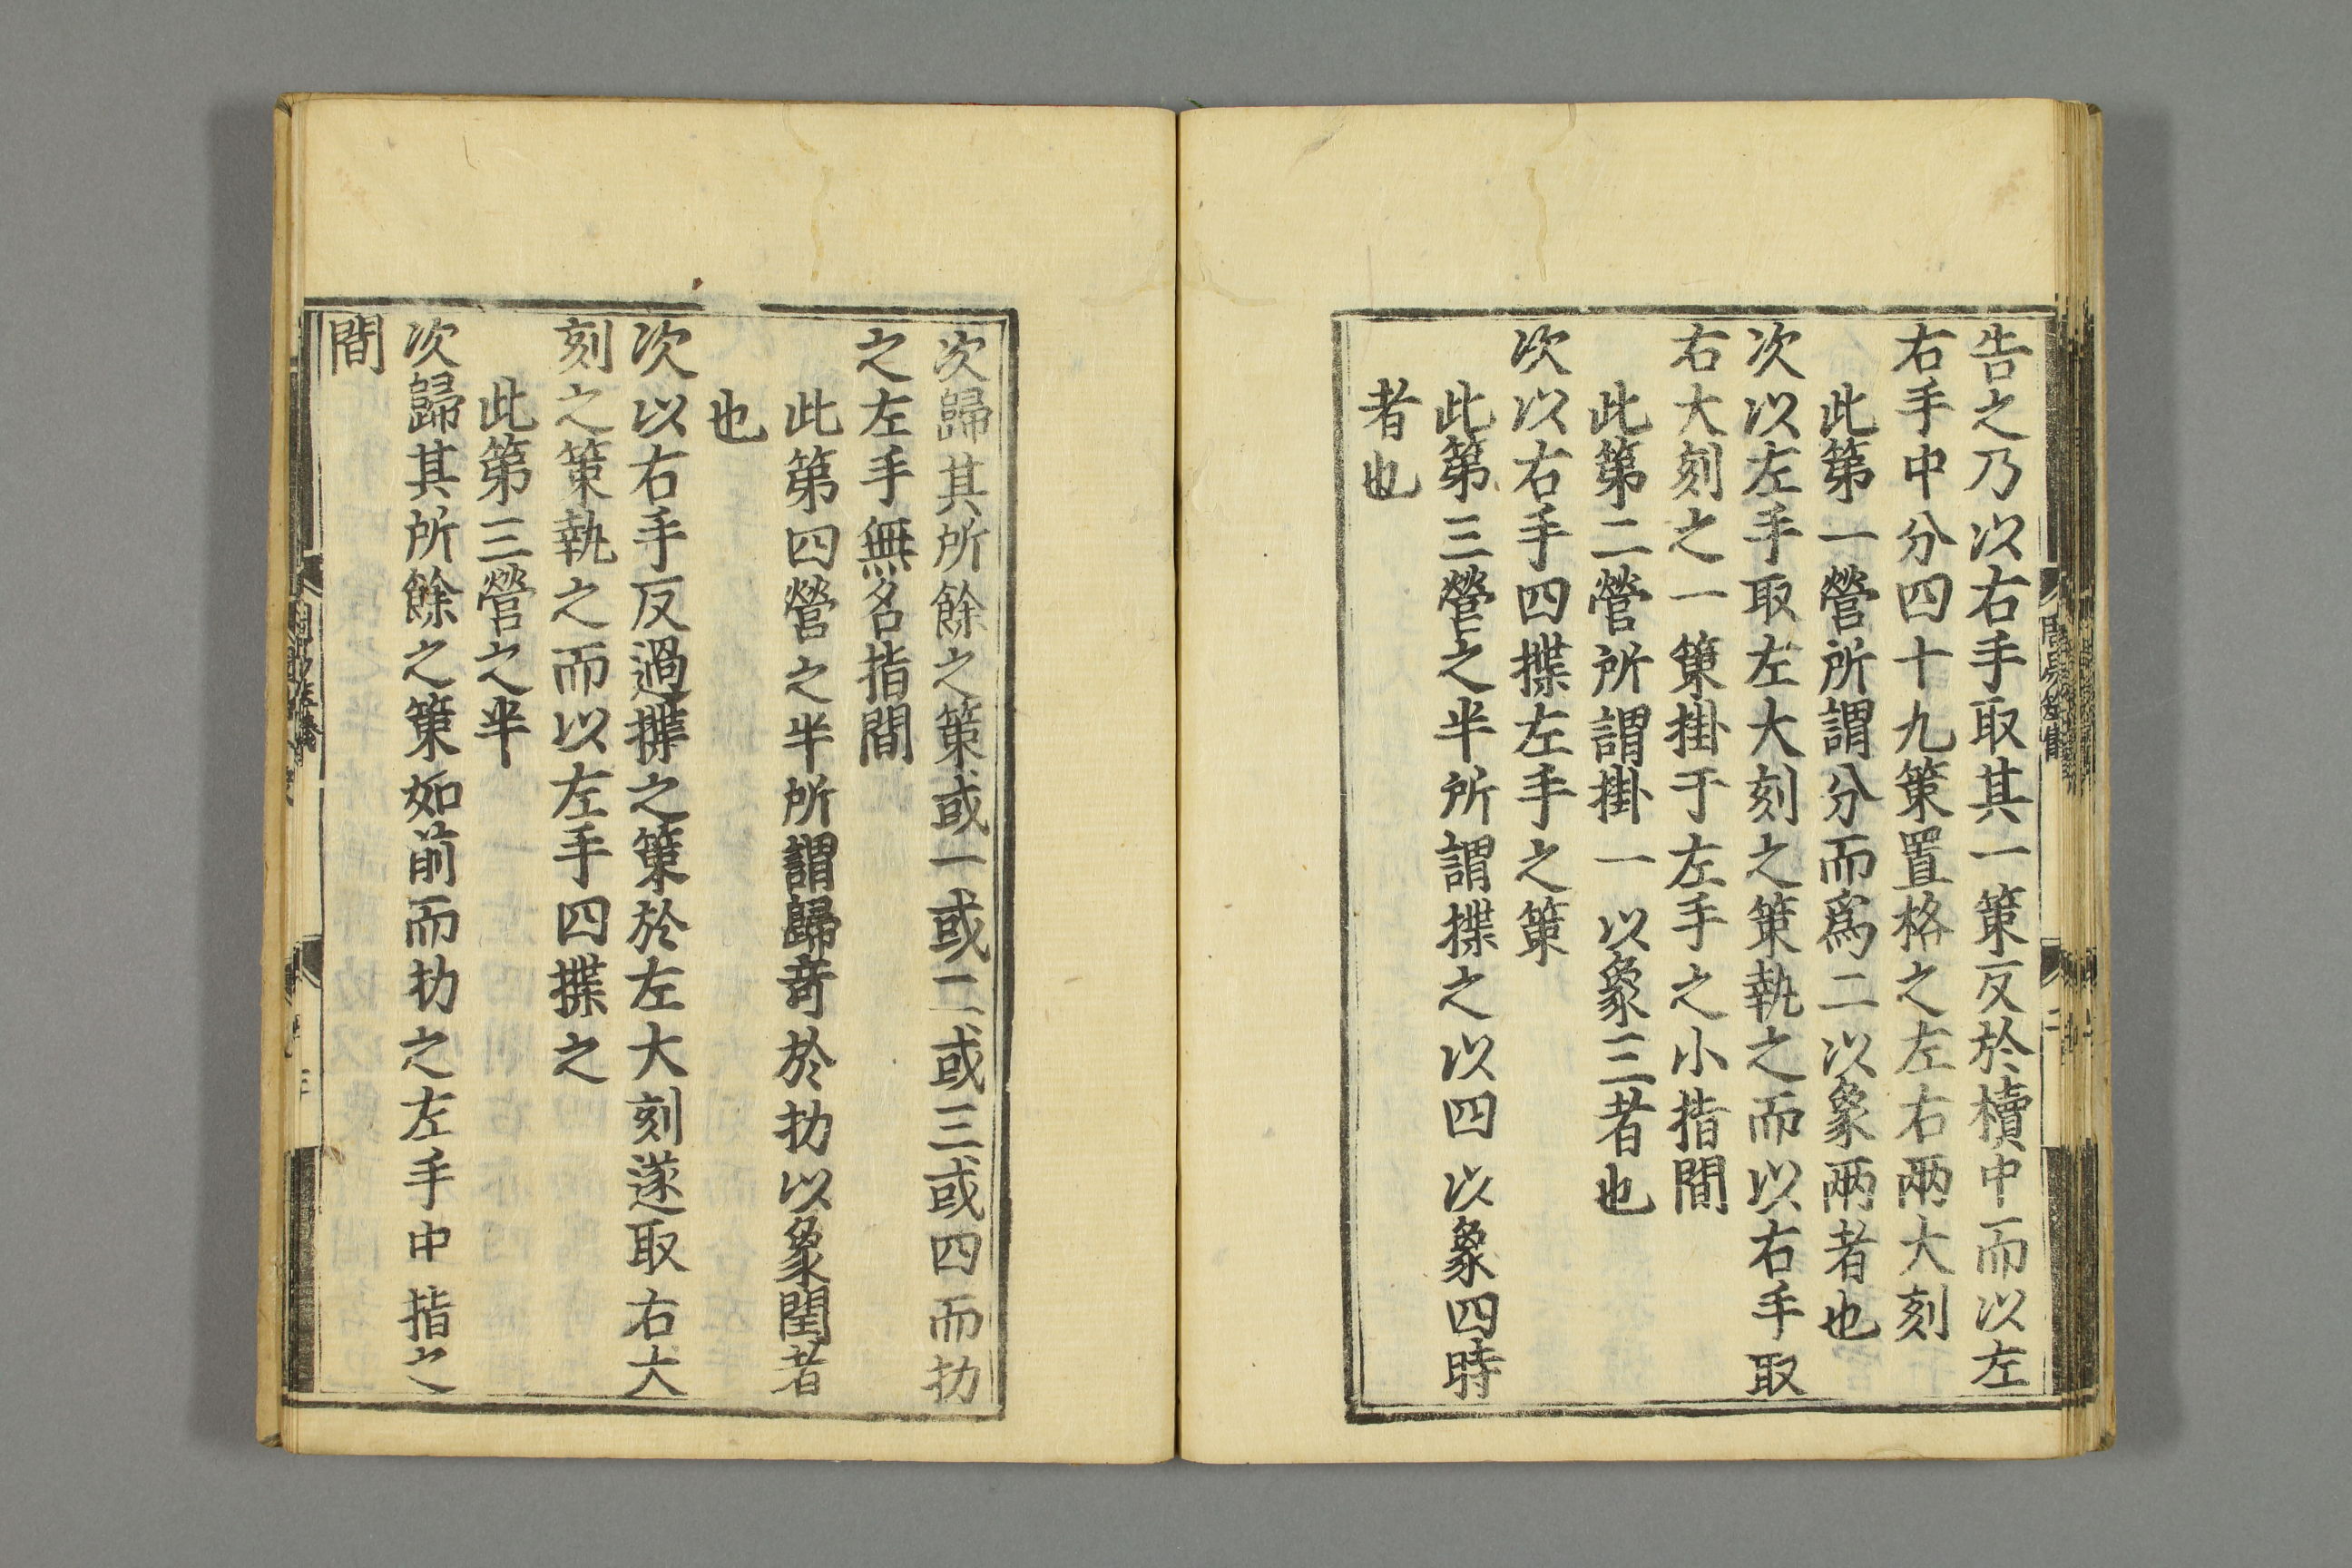 告之乃以右手取其一策反於櫝中而以左
右手中分四十九策置格之左右兩大刻
此第一營所謂分而爲二以象兩者也
次以左手取左大刻之策執之而以右手取
右大刻之一策掛于左手之小指間
此第二營所謂掛一以象三者也
次以右手四揲左手之策
此第三營之半所謂揲之以四以象四時
者也
次歸其所餘之策或一或二或三或四而扐
之左手無名指間
此第四營之半所謂歸奇於扐以象閏者
也
次以右手反過揲之策於左大刻遂取右大
刻之策執之而以左手四揲之
此第三營之半
次歸其所餘之策如前而扐之左手中指之
間